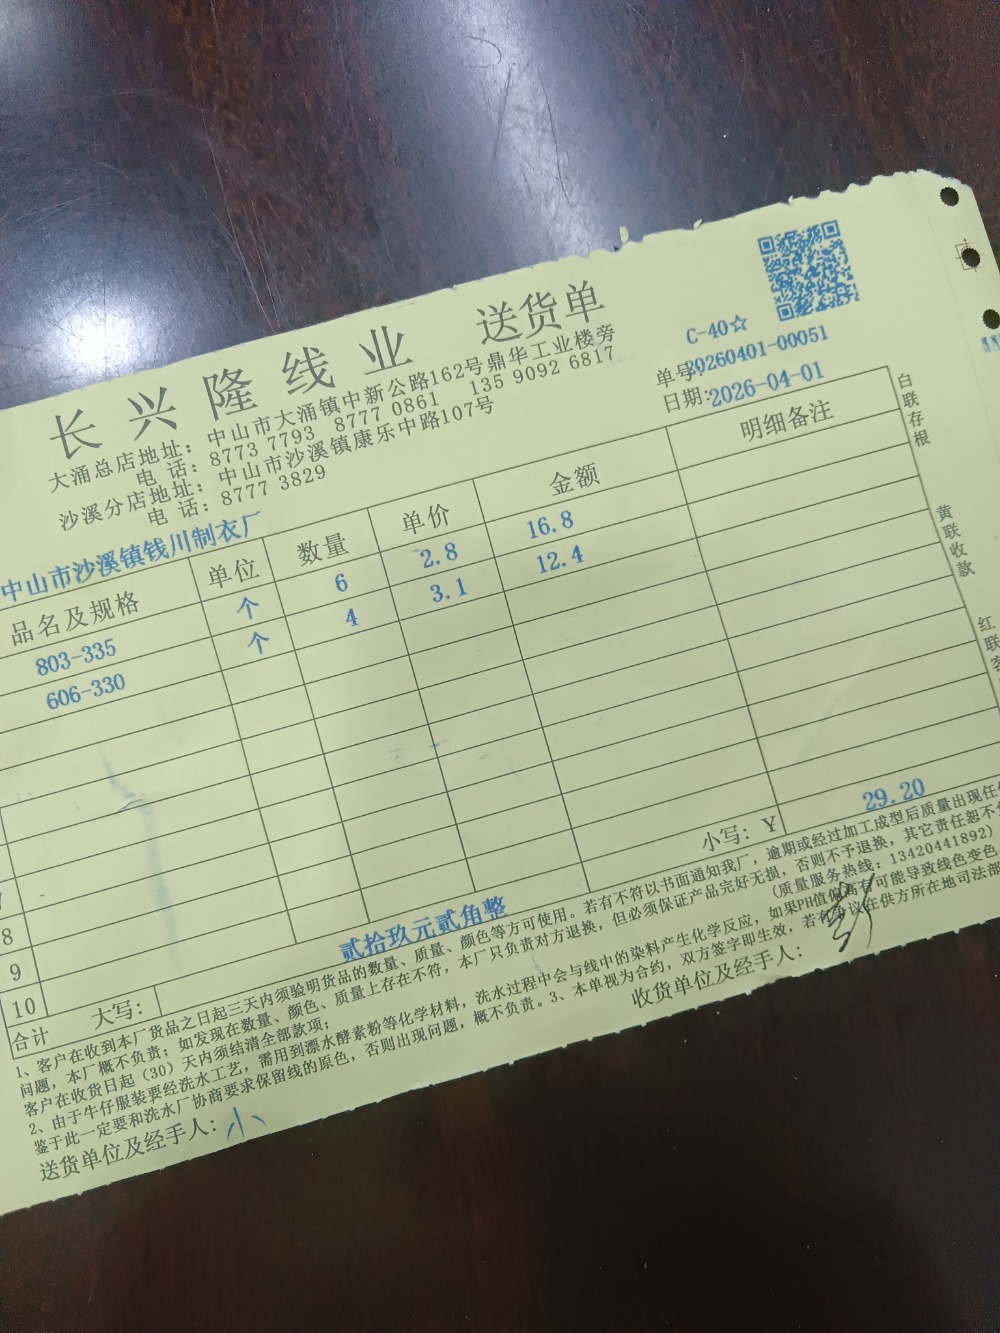 长兴隆线业 送货单
大涌总店地址：中山市大涌镇中新公路162号鼎华工业楼旁
电 话：8773 7793 8777 0861 135 9092 6817
沙溪分店地址：中山市沙溪镇康乐中路107号
电 话：8777 3829
C-40☆
单号：20260401-00051
日期：2026-04-01
中山市沙溪镇钱川制衣厂
品名及规格 单位 数量 单价 金额 明细备注
803-335 个 6 2.8 16.8
606-330 个 4 3.1 12.4
8
9
10
合计 大写： 贰拾玖元贰角整 小写：Y 29.20
1、客户在收到本厂货品之日起三天内须验明货品的数量、质量、颜色等方可使用。若有不符以书面通知我厂，逾期或经过加工成型后质量出现任
问题，本厂概不负责；如发现在数量、颜色、质量上存在不符，本厂只负责对方退换，但必须保证产品完好无损，否则不予退换，其它责任恕不
客户在收货日起（30）天内须结清全部款项； （质量服务热线：13420441892）
2、由于牛仔服装要经洗水工艺，需用到漂水酵素粉等化学材料，洗水过程中会与线中的染料产生化学反应，如果PH值偏高有可能导致线色变色
鉴于此一定要和洗水厂协商要求保留线的原色，否则出现问题，概不负责。3、本单视为合约，双方签字即生效，若有争议在供方所在地司法部
送货单位及经手人：小 收货单位及经手人：
白联存根
黄联收款
红联客